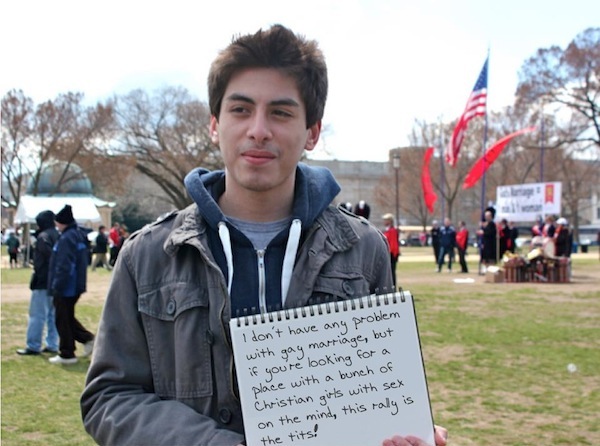 I don't have any problem
with gay marriage, but
if you're looking for a
place with a bunch of
Christian girls with sex
on the mind, this rally is
the tits!